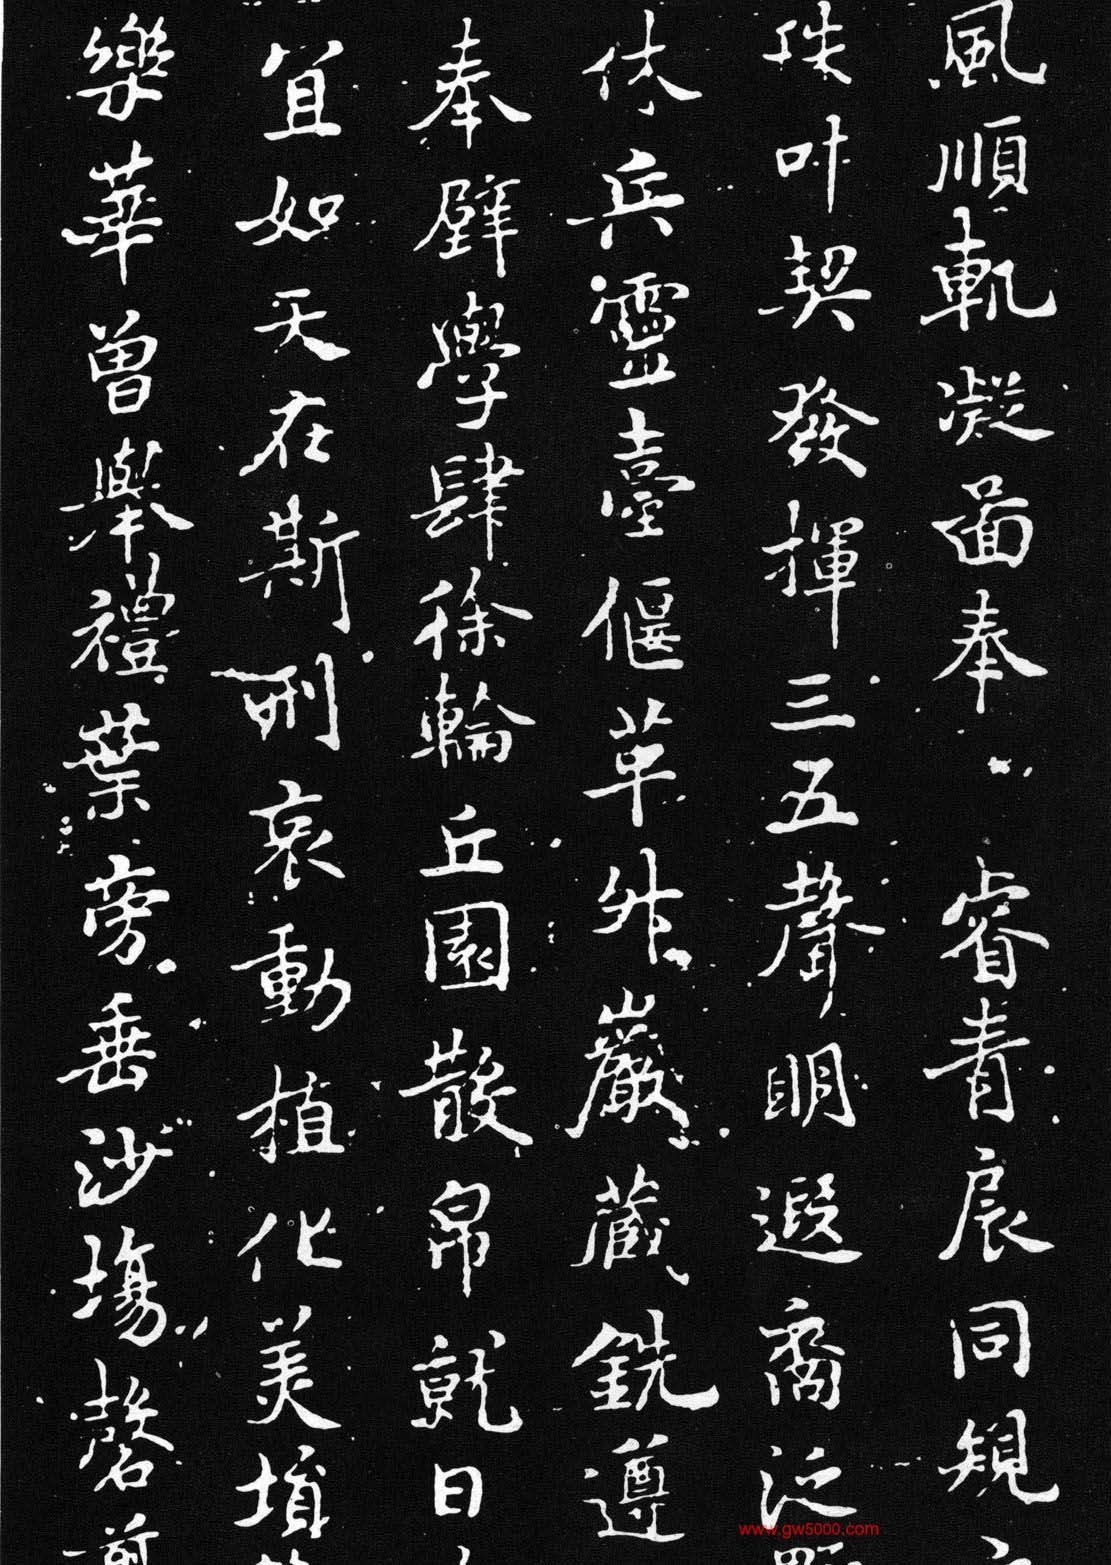 風順軌凝圖奉睿青扆同規
叶契發揮三五聲明遐裔泛野
休兵靈臺偃革外巖藏銑遵
奉辟學肆徐輪丘園散帛就日
宜如天在斯刑哀動植化美填
樂華曾舉禮葉旁垂沙場磬
www.gw5000.com